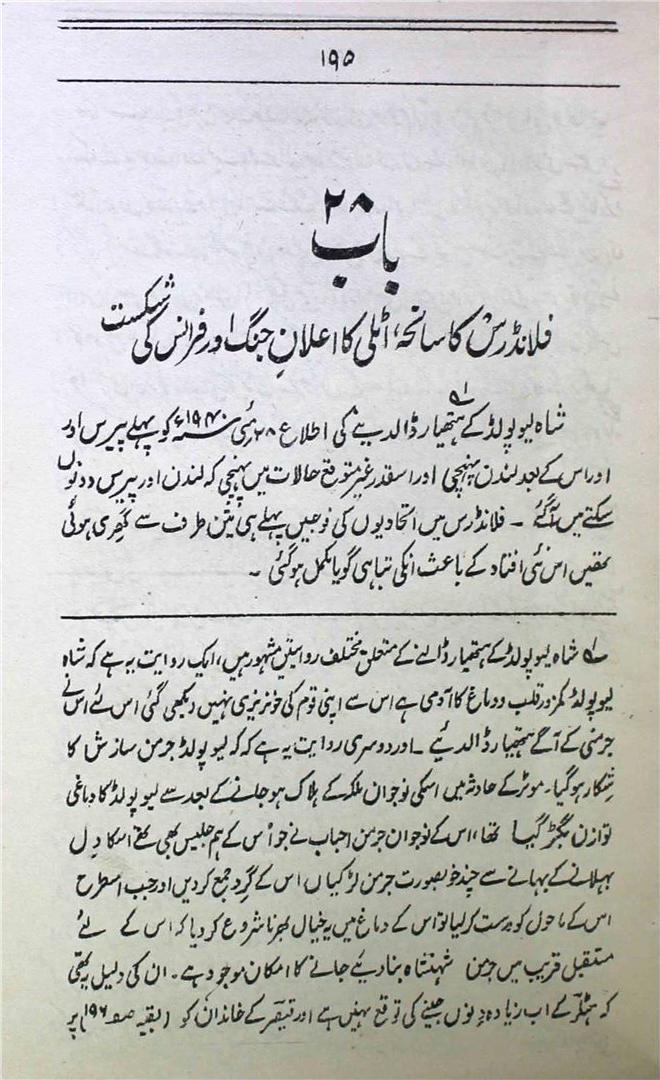 ۱۹۵
باب ۲۸
فلانڈرس کا سانحہ، اٹلی کا اعلانِ جنگ اور فرانس کی شکست
شاہ لیوپولڈ کے ہتھیار ڈالدینے کی اطلاع ۲۸ مئی ۱۹۴۰ء کو پہلے پیرس اور
اور اس کے بعد لندن پہنچی اور اسقدر غیر متوقع حالات میں پہنچی کہ لندن اور پیرس دونوں
سکتے میں آ گئے ۔ فلانڈرس میں اتحادیوں کی فوجیں پہلے ہی تین طرف سے گھری ہوئی
تھیں اس نئی افتاد کے باعث انکی تباہی گویا مکمل ہو گئی ۔
لے شاہ لیوپولڈ کے ہتھیار ڈالنے کے متعلق مختلف روایتیں مشہور ہیں، ایک روایت یہ ہے کہ شاہ
لیوپولڈ کمزور قلب و دماغ کا آدمی ہے اس سے اپنی قوم کی خونریزی نہیں دیکھی گئی اس لئے اس نے
جرمنی کے آگے ہتھیار ڈالدئیے ۔ اور دوسری روایت یہ ہے کہ کہ لیوپولڈ جرمن سازش کا
شکار ہو گیا۔ موٹر کے حادثہ میں اسکی نوجوان ملکہ کے ہلاک ہو جانے کے بعد سے لیوپولڈ کا دماغی
توازن بگڑ گیا تھا، اس کے نوجوان جرمن احباب نے جو اُس کے ہم جلیس بھی تھے اسکا دل
بہلانے کے بہانے سے چند خوبصورت جرمن لڑکیاں اس کے گرد جمع کر دیں اور جب اسطرح
اس کے ماحول کو درست کر لیا تو اس کے دماغ میں یہ خیال بھرنا شروع کر دیا کہ اس کے لئے
مستقبل قریب میں جرمن شہنشاہ بنا دیئے جانے کا امکان موجود ہے۔ ان کی دلیل یہ تھی
کہ ہٹلر کے اب زیادہ دنوں جینے کی توقع نہیں ہے اور قیصر کے خاندان کو (بقیہ صفہ ۱۹۶ پر)